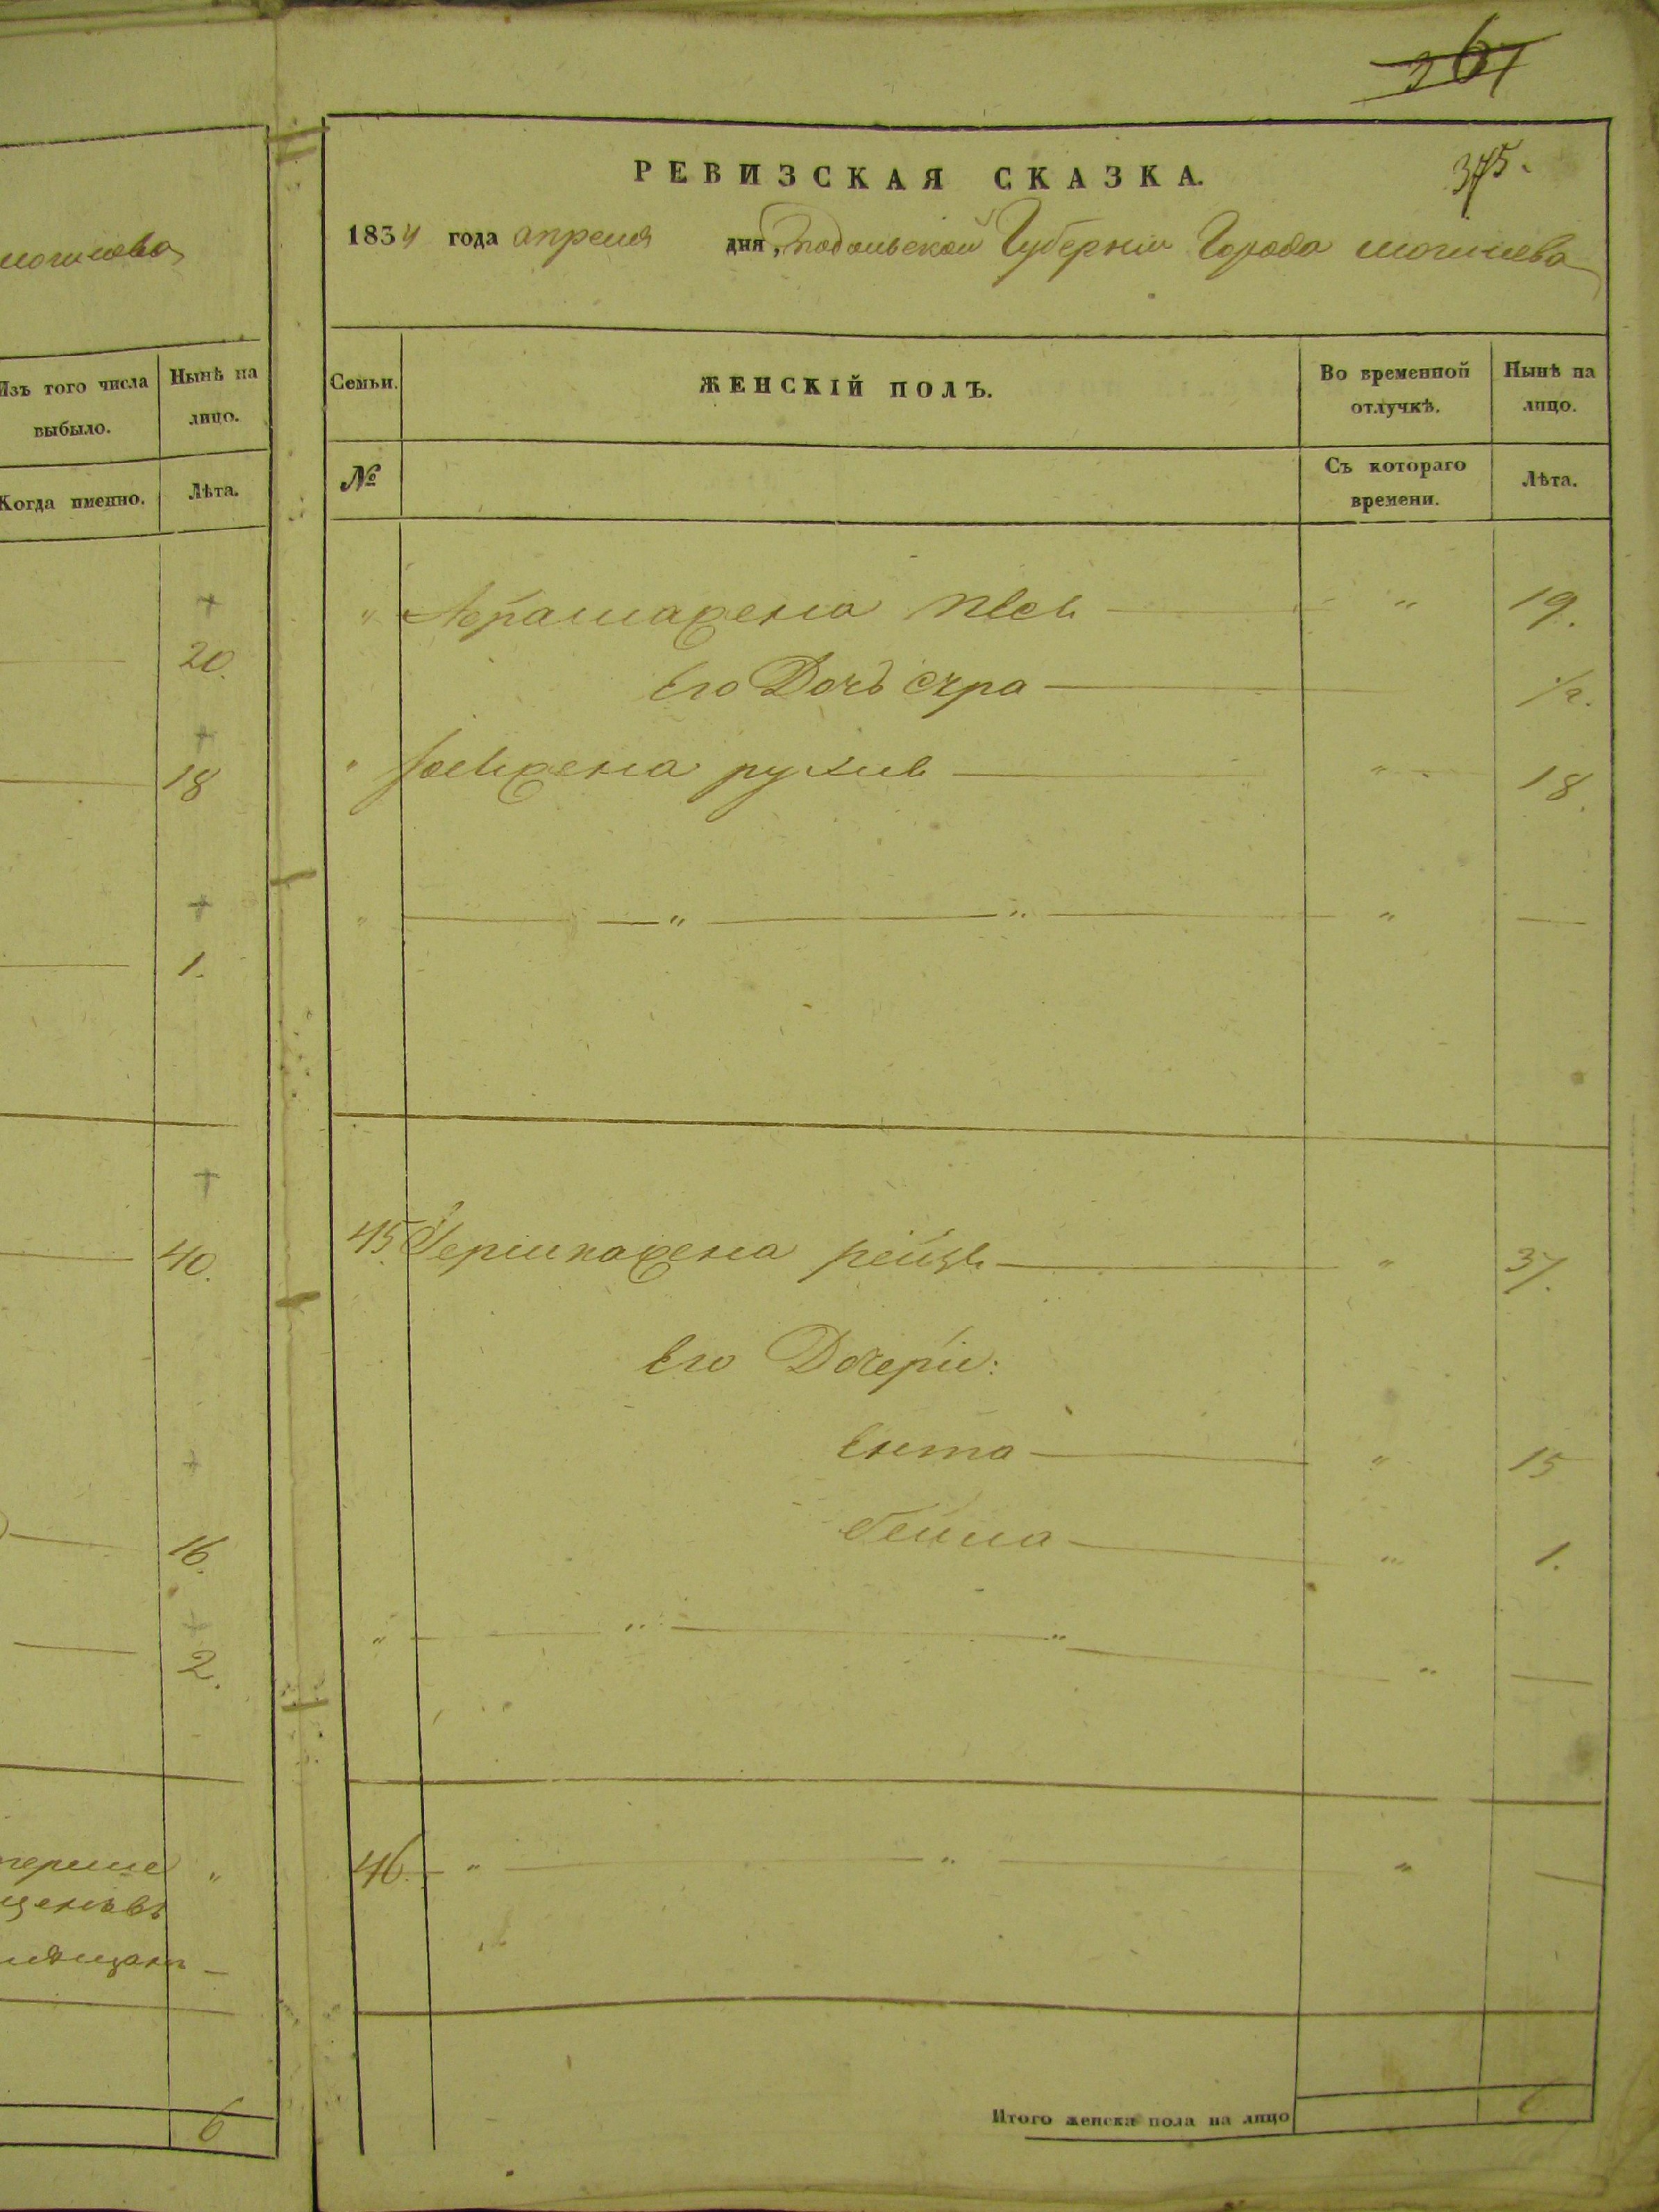 могилева
Изъ того числа
выбыло.
Нынѣ на
лицо.
Когда именно.
Лѣта.
+
20.
+
18
+
1.
+
40.
+
16.
+
2.
"
6
367
375.
РЕВИЗСКАЯ СКАЗКА.
1834 года апреля дня, Подольской Губерніи Города могилева
Семьи.
ЖЕНСКІЙ ПОЛЪ.
Во временной
отлучкѣ.
Нынѣ на
лицо.
№
Съ котораго
времени.
Лѣта.
" Абрама жена песя — " 19.
Его Дочь сура — 1/2.
" жена рухля — " 18.
" — " — " — " —
45 Гершка жена рейзя — " 37.
Его Дочеріи:
Ента — " 15
бейла — " 1.
" — " — " — " —
46. — " — " — " —
Итого женска пола на лицо 6